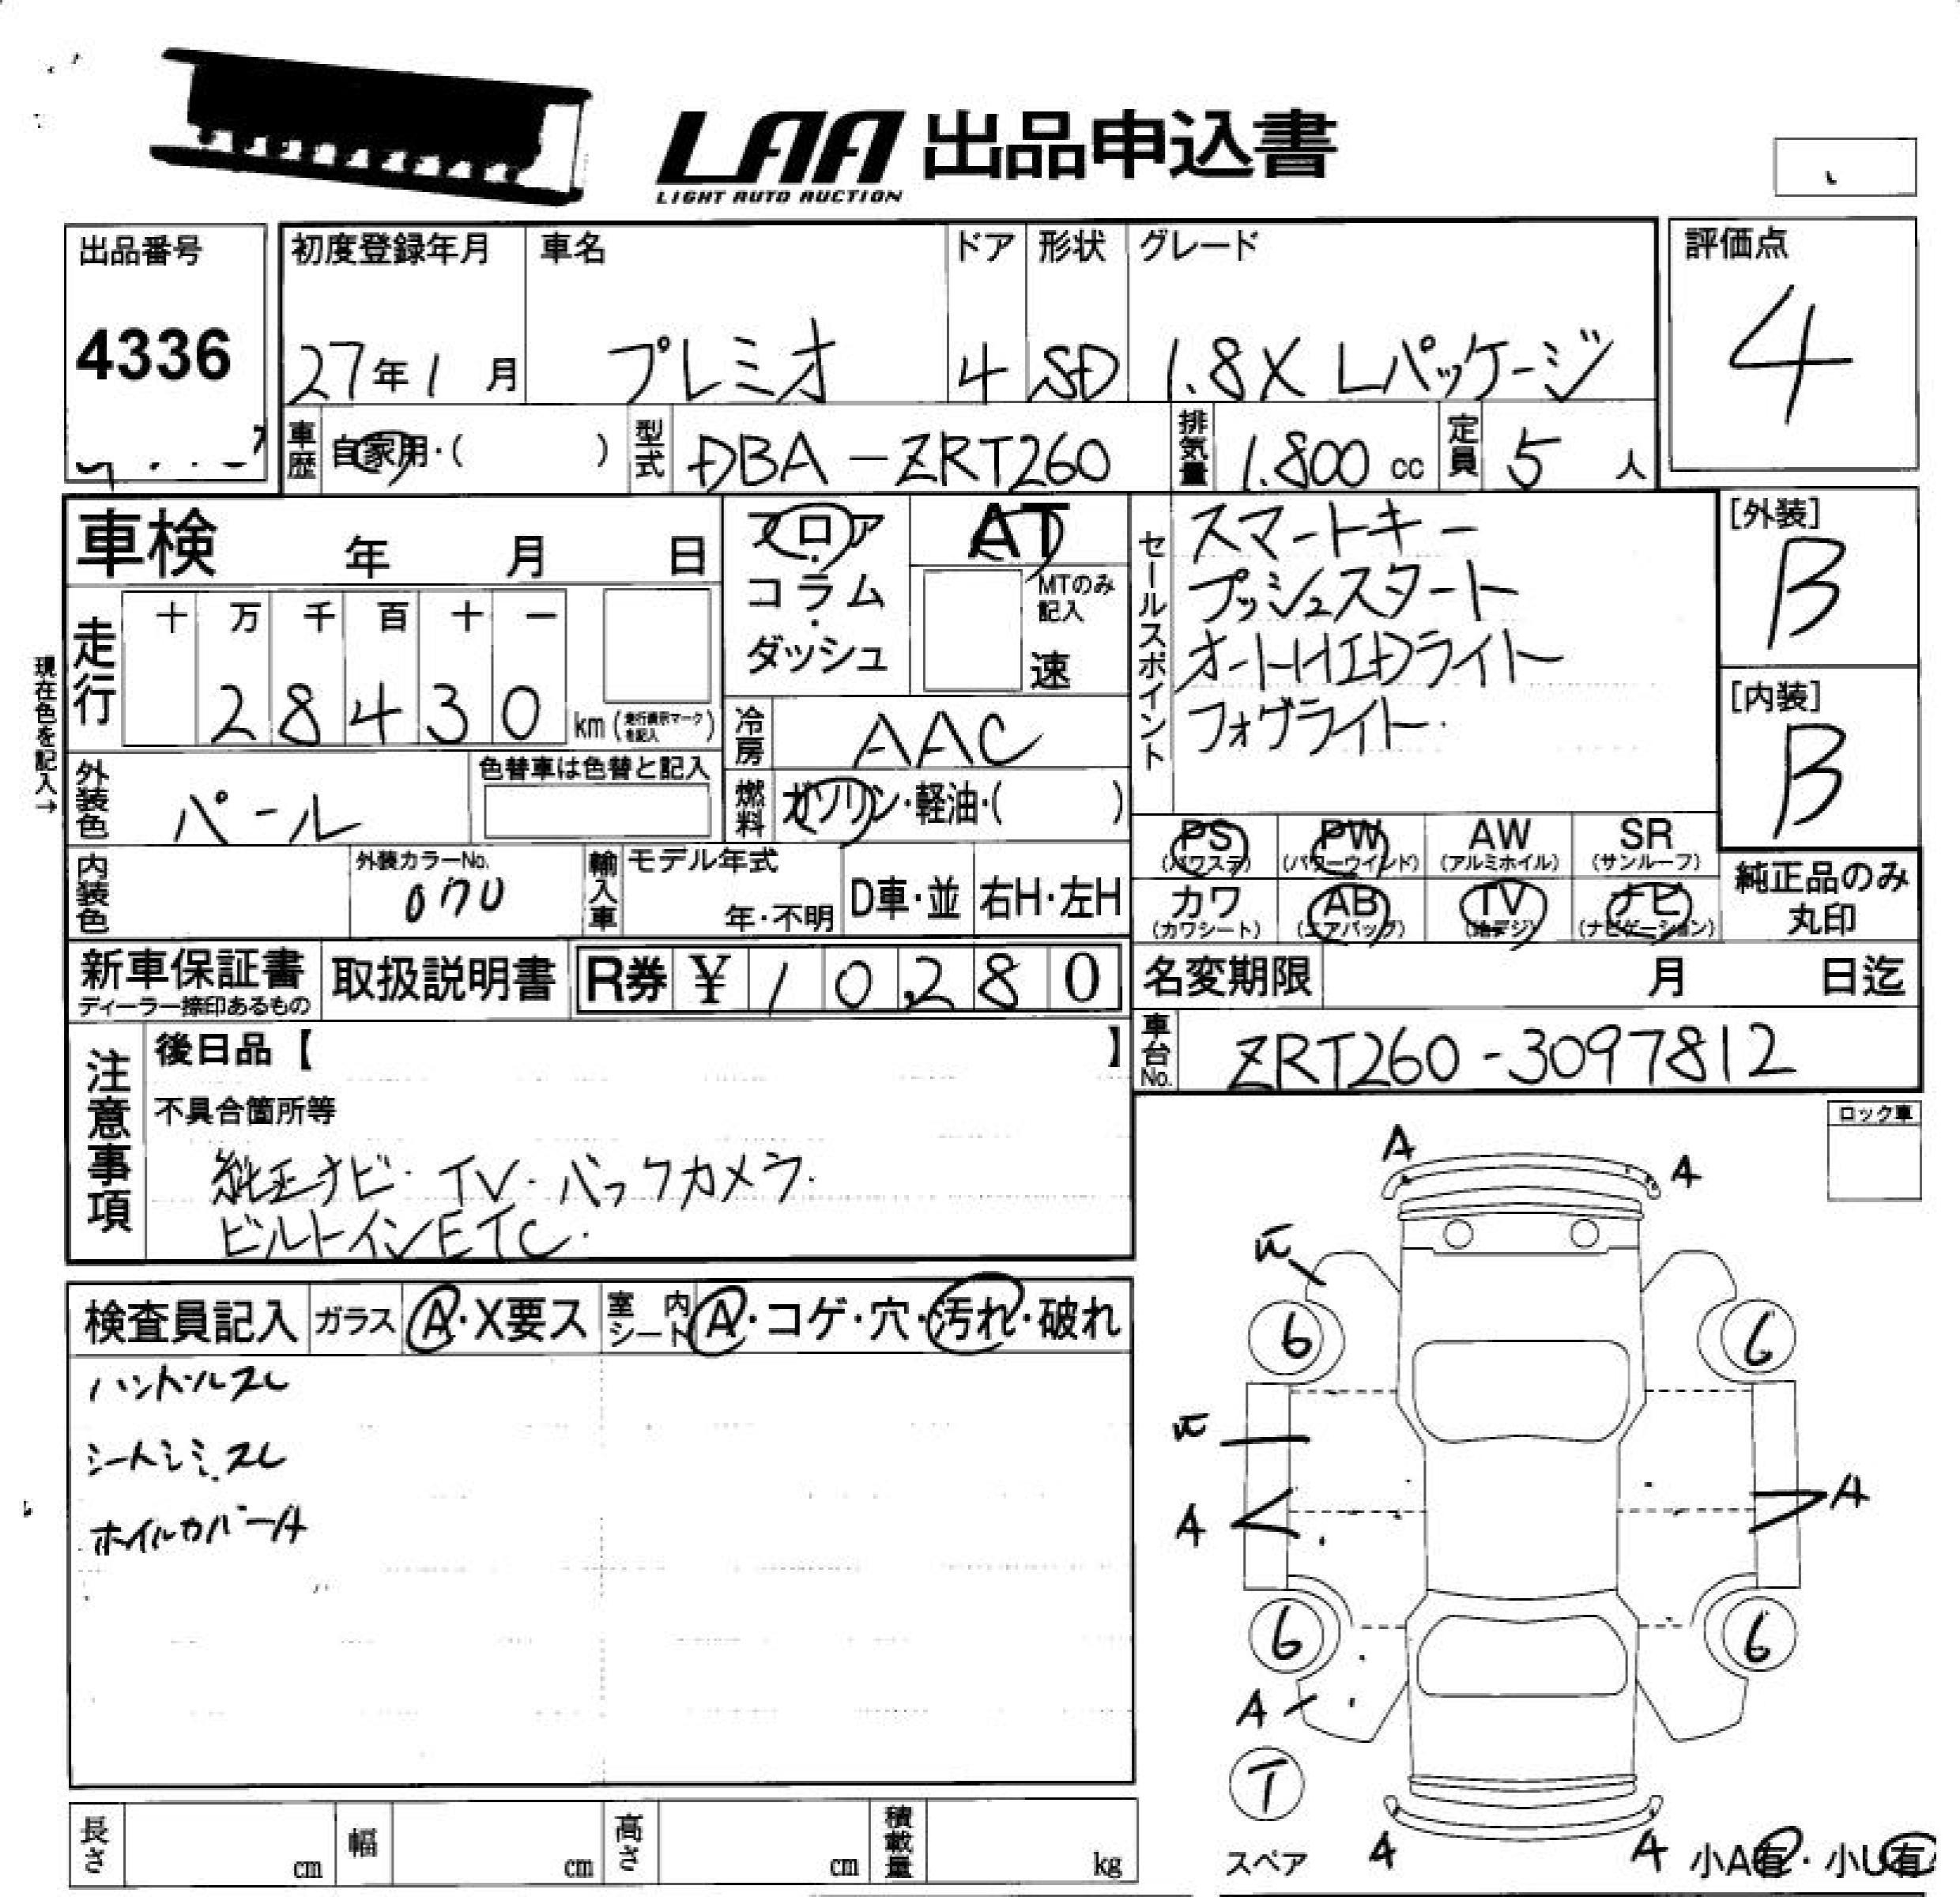 LAA 出品申込書
LIGHT AUTO AUCTION
出品番号
4336
初度登録年月
27年1月
車名
プレミオ
ドア
4
形状
SD
グレード
1.8X Lパッケージ
評価点
4
車歴
自家用・( )
型式
DBA-ZRT260
排気量
1.800 cc
定員
5 人
車検 年 月 日
フロア・コラム・ダッシュ
AT
MTのみ記入
速
セールスポイント
スマートキー
プッシュスタート
オートHIDライト
フォグライト
[外装]
B
[内装]
B
現在色を記入→
走行
十 万 千 百 十 一
2 8 4 3 0
km (走行表示マークを記入)
冷房
AAC
外装色
パール
色替車は色替と記入
燃料
ガソリン・軽油・( )
PS (パワステ)
PW (パワーウインド)
AW (アルミホイル)
SR (サンルーフ)
内装色
外装カラーNo.
070
輸入車
モデル年式
年・不明
D車・並
右H・左H
カワ (カワシート)
AB (エアバッグ)
TV (地デジ)
ナビ (ナビゲーション)
純正品のみ丸印
新車保証書
ディーラー捺印あるもの
取扱説明書
R券 ¥ 10,280
名変期限 月 日迄
車台No.
ZRT260-3097812
注意事項
後日品【 】
不具合箇所等
純正ナビ・TV・バックカメラ.
ビルトインETC.
ロック車
検査員記入
ガラス A・X要ス
室内シート A・コゲ・穴・汚れ・破れ
ハンドルスレ
シートシミ.スレ
ホイルカバーA
A
A
6
6
A
A
6
6
A
T
スペア
A
A
小A有・小U有
長さ cm
幅 cm
高さ cm
積載量 kg